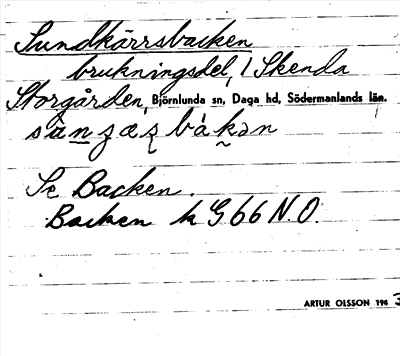 Sundkärrsbacken
brukningsdel, 1 Skenda
Storgården, Björnlunda sn, Daga hd, Södermanlands län.
Se Backen.
Backen k G66 N.O.
ARTUR OLSSON 194 3